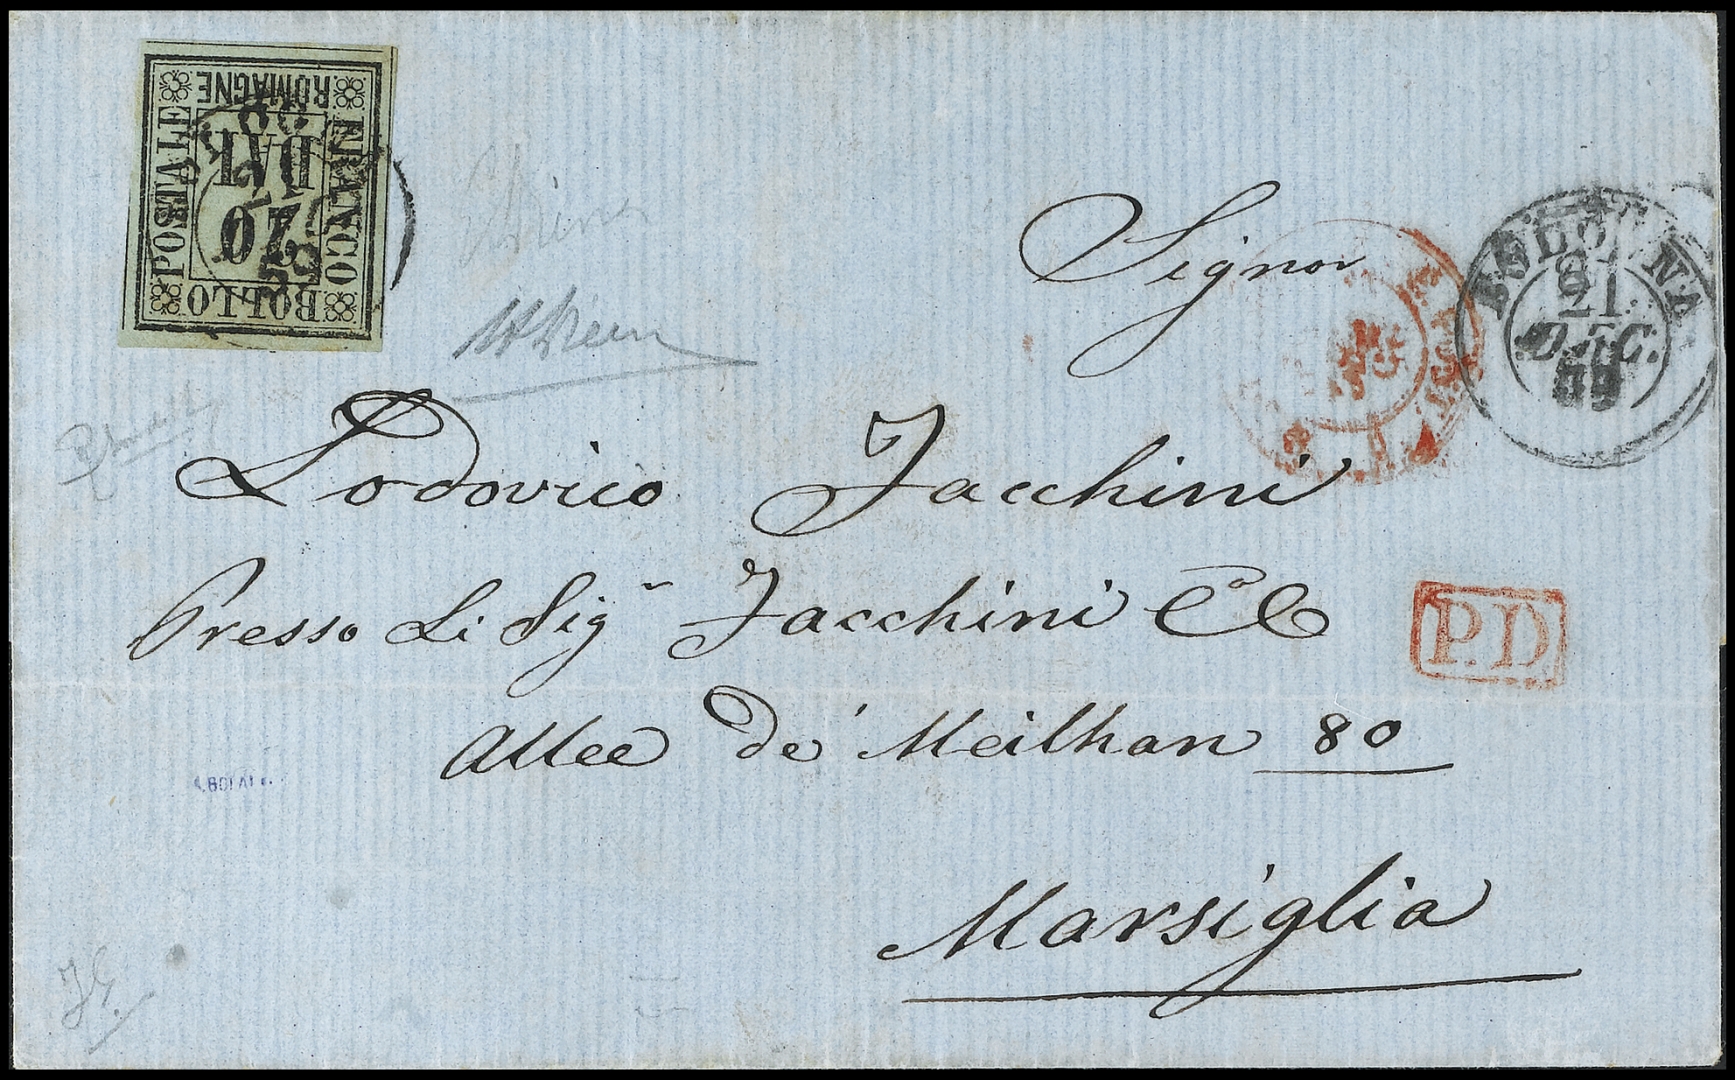 FRANCO
BOLLO
POSTALE
ROMAGNE
BAI
20
BOLOGNA
21
DEC.
59
Signor
Lodovico Jacchini
Presso Li Sig.ri Jacchini e C.o
P.D
Allee de Meilhan 80
Marsiglia